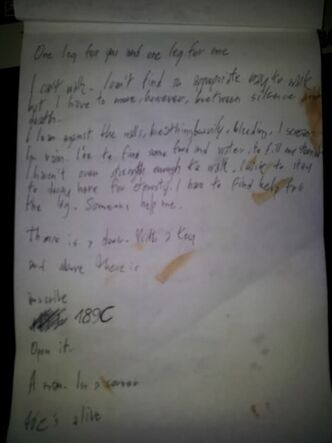 One leg for you and one leg for me
I can't walk. I can't find an appropriate way to walk
but I have to move, however, between silence and
death.
I lean against the walls, breathing heavily, bleeding, I scream
In vain. I've to find some food and water, to fill me
I haven't even strength enough to walk. I wish to stay
to decay here for eternity. I have to find help for
the leg. Someone help me.
There is a door. With a key
and above there is
inscribe
189C
Open it.
A man. In a corner
He's alive